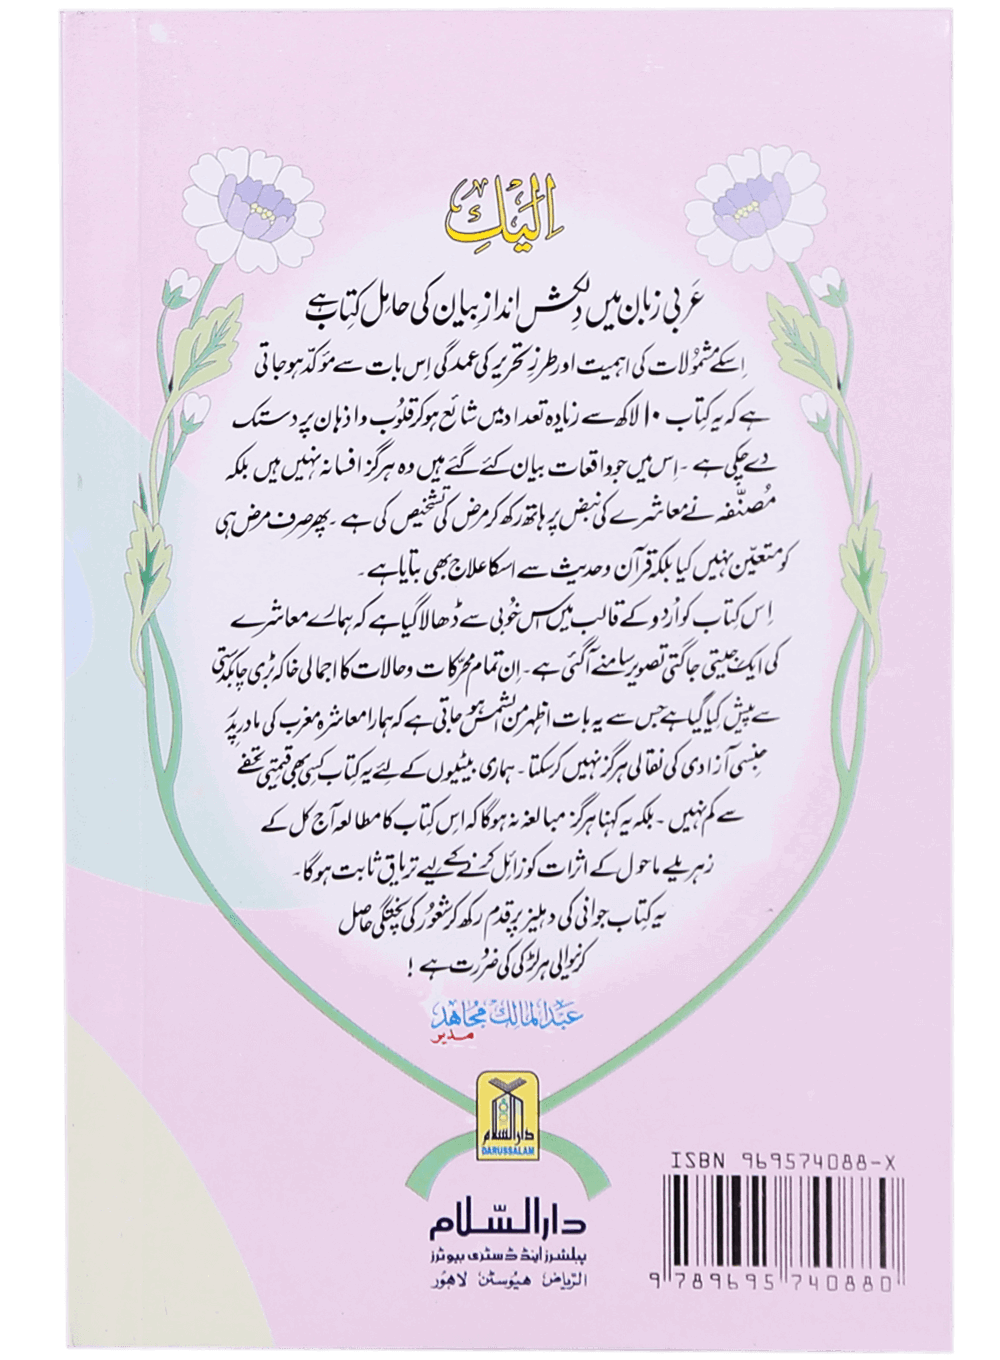 اِلَيكِ
عَربی زبان میں دِلکش اندازِ بیان کی حامِل کتاب ہے
اِسکے مشمُولات کی اہمیت اور طرزِ تحریر کی عمدگی اِس بات سے مؤکّد ہوجاتی
ہے کہ یہ کتاب ۱۰ لاکھ سے زیادہ تعداد میں شائع ہوکر قلوُب و اذہان پر دستک
دے چکی ہے ۔ اِس میں جو واقعات بیان کئے گئے ہیں وہ ہرگز افسانہ نہیں ہیں بلکہ
مُصنّفہ نے معاشرے کی نبض پر ہاتھ رکھ کر مرض کی تشخیص کی ہے ۔ پھر صرف مرض ہی
کو متعیّن نہیں کیا بلکہ قرآن و حدیث سے اسکا علاج بھی بتایا ہے ۔
اِس کتاب کو اُردو کے قالب میں اس خُوبی سے ڈھالا گیا ہے کہ ہمارے معاشرے
کی ایک جیتی جاگتی تصویر سامنے آگئی ہے ۔ اِن تمام محرّکات و حالات کا اجمالی خاکہ بڑی چابکدستی
سے پیش کیا گیا ہے جس سے یہ بات اظہر من الشمس ہو جاتی ہے کہ ہمارا معاشرہ مغرب کی مادر پِدَر
جنسی آزادی کی نقالی ہرگز نہیں کرسکتا ۔ ہماری بیٹیوں کے لئے یہ کتاب کسی بھی قیمتی تحفے
سے کم نہیں ۔ بلکہ یہ کہنا ہرگز مبالغہ نہ ہوگا کہ اس کتاب کا مطالعہ آج کل کے
زہریلے ماحول کے اثرات کو زائل کرنے کے لیے تریاق ثابت ہوگا ۔
یہ کتاب جوانی کی دہلیز پر قدم رکھ کر شعُور کی پختگی حاصل
کرنیوالی ہر لڑکی کی ضرُورت ہے !
عبدالمالک مجاهد
مدیر
دارالسلام
DARUSSALAM
ISBN 969574088-X
دارالسّلام
پبلشرز اینڈ ڈسٹری بیوٹرز
الرّیاض هیوسٹن لاهور
9 789695 740880